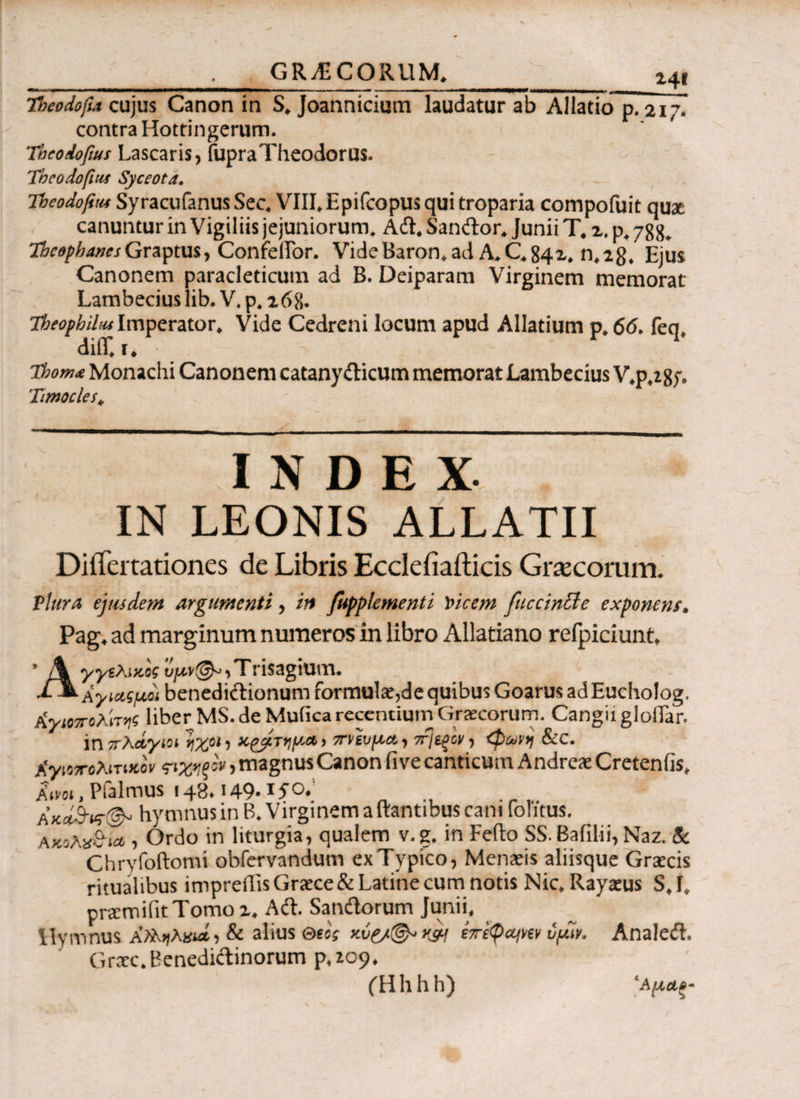 GRÆCORUM. 241
Theodosia cujus Canon in S. Joannicium laudatur ab Allatio p. 217.
contra Hottingerum.
Theodosius Lascaris, supra Theodorus.
Theodosius Syceota.
Theodosius Syracusanus Sec. VIII. Episcopus qui troparia composuit quæ
canuntur in Vigiliis jejuniorum. Act. Sanctor. Junii T. 2. p. 788.
Theophanes Graptus, Confessor. Vide Baron. ad A. C. 842. n. 28. Ejus
Canonem paracleticum ad B. Deiparam Virginem memorat
Lambecius lib. V. p. 268.
Theophilus Imperator. Vide Cedreni locum apud Allatium p. 66. seq.
diss. 1.
Thomæ Monachi Canonem catanycticum memorat Lambecius V. p. 285.
Timocles.
INDEX
IN LEONIS ALLATII
Dissertationes de Libris Ecclesiasticis Græcorum.
Plura ejusdem argumenti, in supplementi vicem succincte exponens.
Pag. ad marginum numeros in libro Allatiano respiciunt.
Ἀγγελικὸς ὕμνος, Trisagium.
Ἁγιασμοὶ benedictionum formulæ, de quibus Goarus ad Eucholog.
Ἁγιοπολίτης liber MS. de Musica recentium Græcorum. Cangii glossar.
in πλάγιοι ἦχοι, κράτημα, πνεῦμα, πτερὸν, φωνὴ &c.
Ἁγιοπολιτικὸν στιχηρὸν, magnus Canon sive canticum Andreæ Cretensis.
Αἶνοι, Psalmus 148. 149. 150.
Ἀκάθιστος hymnus in B. Virginem a stantibus cani solitus.
Ἀκολουθία, Ordo in liturgia, qualem v. g. in Festo SS. Basilii, Naz. &
Chrysostomi observandum ex Typico, Menæis aliisque Græcis
ritualibus impressis Græce & Latine cum notis Nic. Rayæus S. I.
præmisit Tomo 2. Act. Sanctorum Junii.
Hymnus Ἀλληλουιά, & alius Θεὸς κύριος καὶ ἐπέφαινεν ὑμῖν. Analect.
Græc. Benedictinorum p. 209.
(Hhhh) Ἁμαρ-